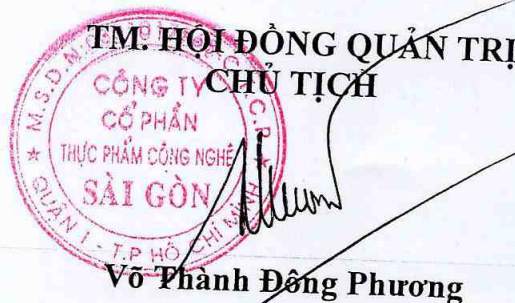 TM. HỘI ĐỒNG QUẢN TRỊ
CHỦ TỊCH
M.S.D.N:
C.T.C.P
CÔNG TY
CỔ PHẦN
THỰC PHẨM CÔNG NGHỆ
SÀI GÒN
QUẬN 1 - T.P HỒ CHÍ MINH
Võ Thành Đông Phương